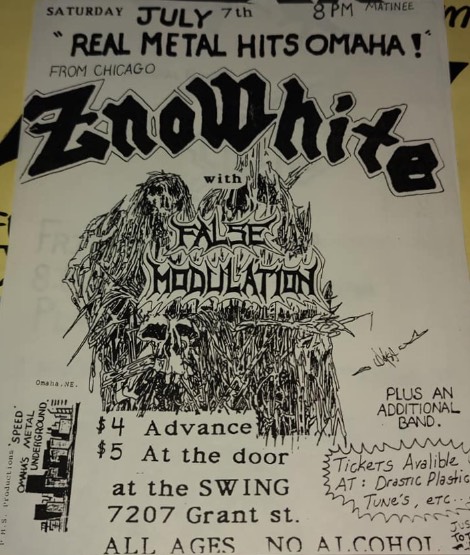 SATURDAY JULY 7th 8PM MATINEE
"REAL METAL HITS OMAHA!"
FROM CHICAGO
ZnoWhite
with
FALSE
MODULATION
Omaha.NE.
P.H.S. Productions 'SPEED'
OMAHA'S METAL
UNDERGROUND
$4 Advance
$5 At the door
at the SWING
7207 Grant st.
PLUS AN
ADDITIONAL
BAND.
Tickets Avalible
AT: Drastic Plastic
Tune's, etc...
ALL AGES NO ALCOHOL